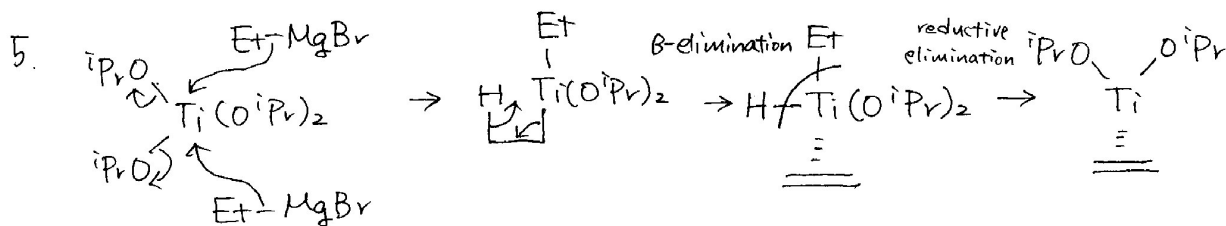 5.
Et–MgBr
ⁱPrO
Ti(OⁱPr)₂
ⁱPrO
Et–MgBr
→
Et
H Ti(OⁱPr)₂
β-elimination
→
Et
H–Ti(OⁱPr)₂
reductive
elimination
→
ⁱPrO OⁱPr
Ti